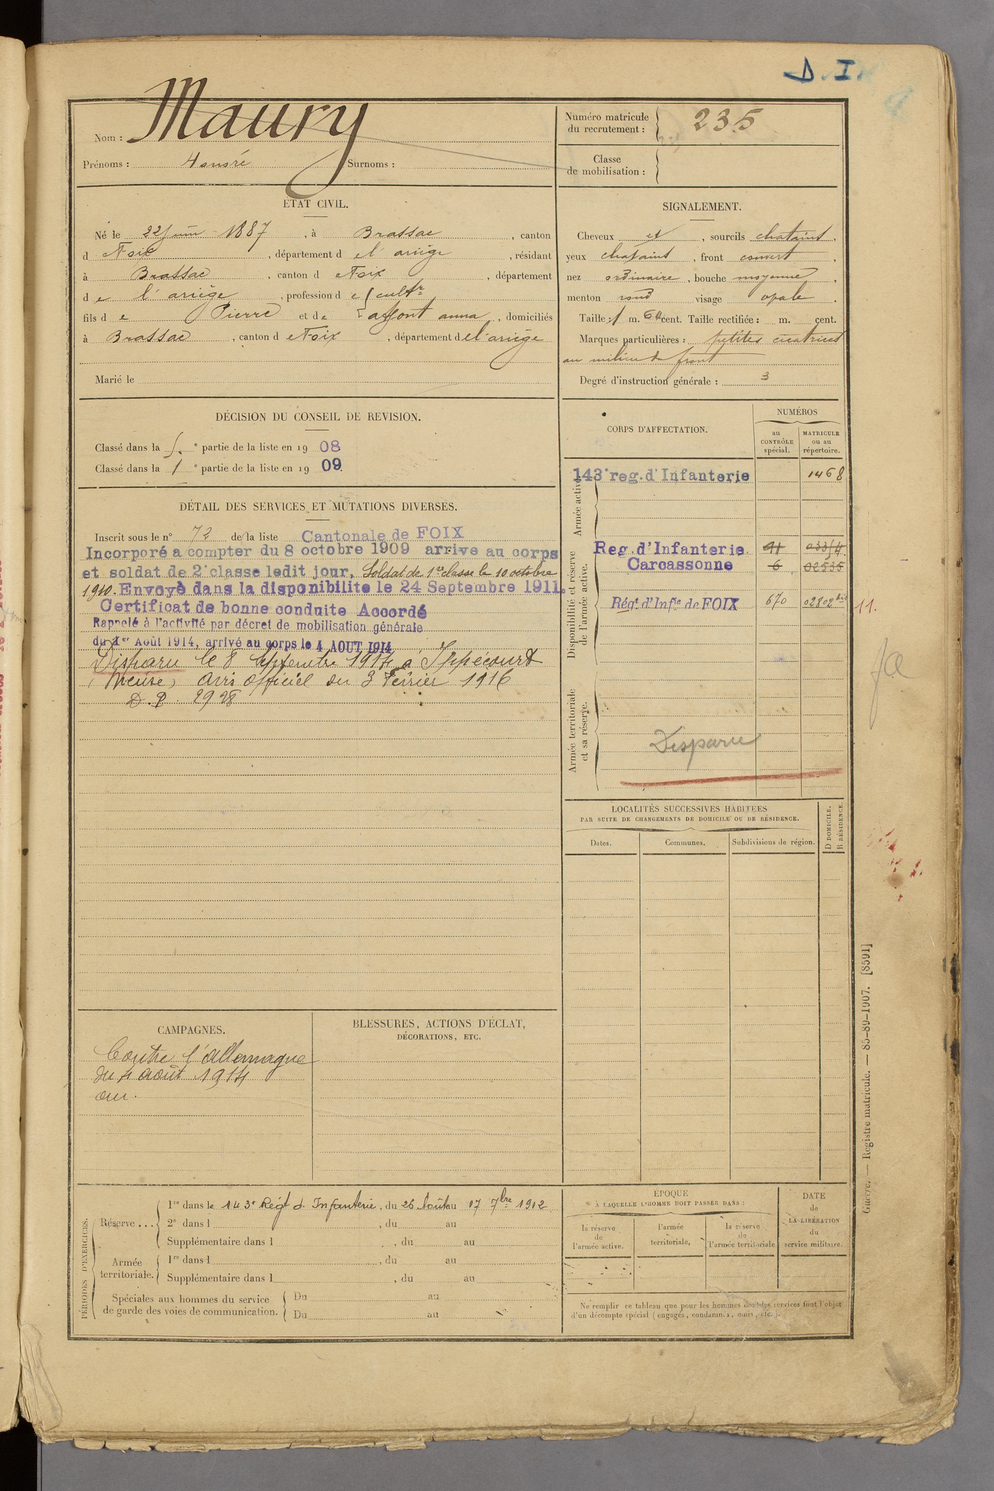 D. I
Nom : Maury
Prénoms : Honoré Surnoms :
Numéro matricule du recrutement : 235
Classe de mobilisation :
ÉTAT CIVIL.
Né le 22 juin 1887, à Brassac, canton
de Foix, département de l'ariège, résidant
à Brassac, canton de Foix, département
de l'ariège, profession de cultr
fils de Pierre et de Laffont anna, domiciliés
à Brassac, canton de Foix, département de l'ariège
Marié le
SIGNALEMENT.
Cheveux et, sourcils chatains,
yeux chatains, front couvert,
nez ordinaire, bouche moyenne
menton rond visage ovale.
Taille : 1 m. 64 cent. Taille rectifiée : m. cent.
Marques particulières : petites cicatrices
au milieu du front
Degré d'instruction générale : 3
DÉCISION DU CONSEIL DE REVISION.
Classé dans la 5. e partie de la liste en 1908
Classé dans la 1 e partie de la liste en 1909
DÉTAIL DES SERVICES ET MUTATIONS DIVERSES.
Inscrit sous le n° 72 de la liste Cantonale de FOIX
Incorporé a compter du 8 octobre 1909 arrive au corps
et soldat de 2e classe ledit jour, Soldat de 1re classe le 10 octobre
1910. Envoyé dans la disponibilite le 24 Septembre 1911.
Certificat de bonne conduite Accordé
Rappelé à l'activité par décret de mobilisation générale
du 1er Août 1914, arrivé au corps le 4 AOUT 1914
Disparu le 8 Septembre 1914 à Ippécourt
(Meuse) avis officiel du 3 Février 1916
D. P. 2928
CORPS D'AFFECTATION.
NUMÉROS
au CONTRÔLE spécial.
MATRICULE ou au répertoire.
Armée active.
143e reg. d'Infanterie 1468
Disponibilité et réserve de l'armée active.
Reg. d'Infanterie
Carcassonne 6 02535
Régt d'Infie de FOIX 670 02802bis
11.
fa
Armée territoriale et sa réserve.
Disparu
LOCALITÉS SUCCESSIVES HABITÉES
PAR SUITE DE CHANGEMENTS DE DOMICILE OU DE RÉSIDENCE.
Dates. Communes. Subdivisions de région. D DOMICILE. R RÉSIDENCE.
CAMPAGNES.
Contre l'allemagne
du 4 août 1914
au.
BLESSURES, ACTIONS D'ÉCLAT,
DÉCORATIONS, ETC.
PÉRIODES D'EXERCICES.
Réserve ...
1re dans le 143e Régt d'Infanterie, du 26 Août au 17 7bre 1912
2e dans l , du au
Supplémentaire dans l , du au
Armée territoriale.
1re dans l , du au
Supplémentaire dans l , du au
Spéciales aux hommes du service de garde des voies de communication.
Du au
Du au
ÉPOQUE
À LAQUELLE L'HOMME DOIT PASSER DANS :
la réserve de l'armée active.
l'armée territoriale.
la réserve de l'armée territoriale.
DATE
de
LA LIBÉRATION
du
service militaire.
Ne remplir ce tableau que pour les hommes dont les services font l'objet
d'un décompte spécial (engagés, condamnés, omis, etc.).
Guerre. — Registre matricule. — 85-89-1907. [8591]